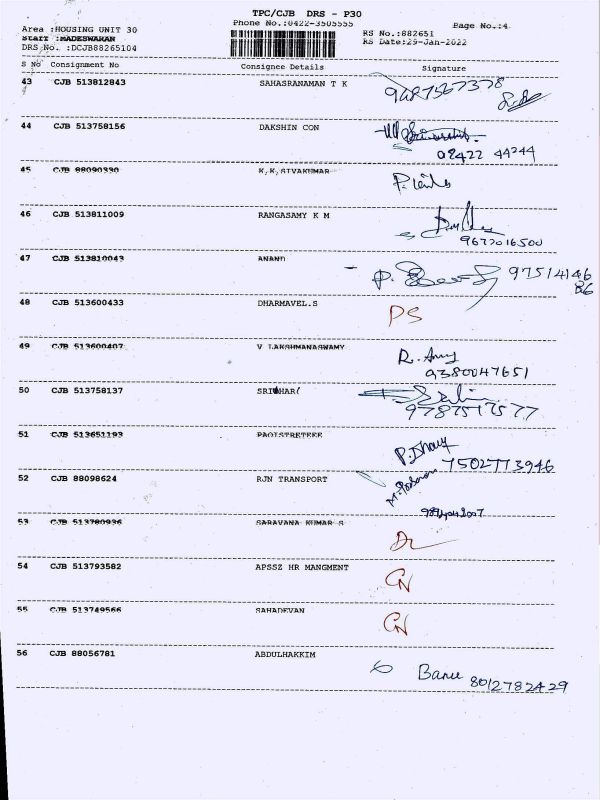 TPC/CJB DRS - P30
Phone No.:0422-3505555
Page No.:4
Area :HOUSING UNIT 30
Staff :MADESWARAN
DRS No. :DCJB88265104
RS No.:882651
RS Date:29-Jan-2022
S No Consignment No Consignee Details Signature
43 CJB 513812843 SAHASRANAMAN T K 9487567378
44 CJB 513758156 DAKSHIN CON
98422 44244
45 CJB 88090330 K.K.SIVAKUMAR
46 CJB 513811009 RANGASAMY K M
9677016500
47 CJB 513810043 ANAND 97514146
86
48 CJB 513600433 DHARMAVEL.S PS
49 CJB 513600407 V LAKSHMANASWAMY
9380047651
50 CJB 513758137 SRIDHAR
9787517577
51 CJB 513651193
7502773946
52 CJB 88098624 RJN TRANSPORT
53 CJB 513780936 SARAVANA KUMAR S
DL
54 CJB 513793582 APSSZ HR MANGMENT CN
55 CJB 513749566 SAHADEVAN CN
56 CJB 88056781 ABDULHAKKIM
Banu 8012782429